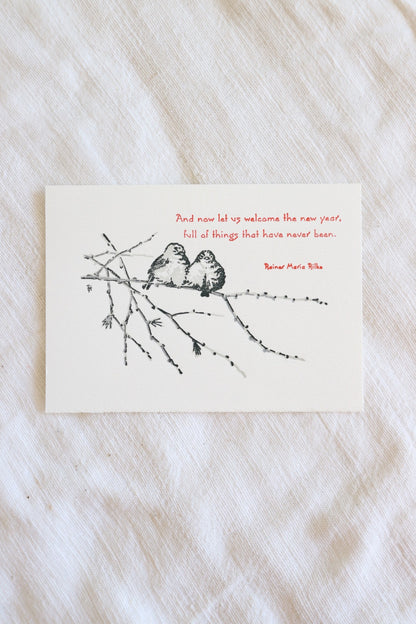 And now let us welcome the new year,
full of things that have never been.
Rainer Maria Rilke